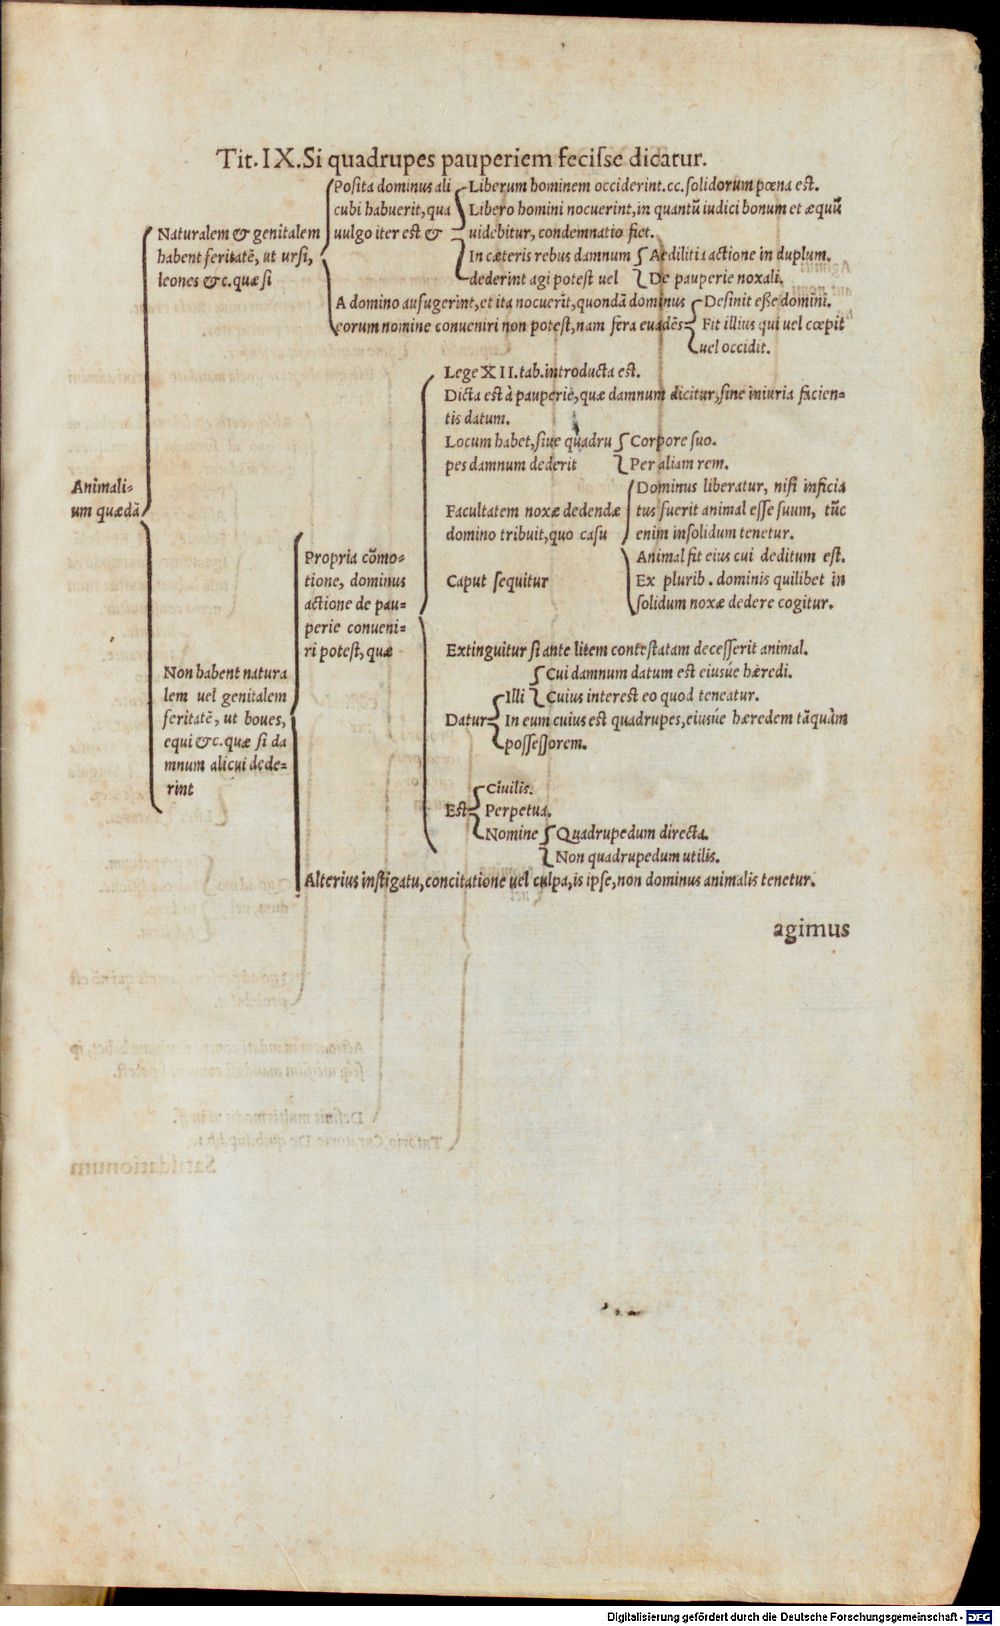 Tit. IX. Si quadrupes pauperiem fecisse dicatur.
Animali-
um quædā
Naturalem & genitalem
habent feritatē, ut ursi,
leones &c. quæ si
Posita dominus ali
cubi habuerit, qua
uulgo iter est &
Liberum hominem occiderint. cc. solidorum pœna est.
Libero homini nocuerint, in quantū iudici bonum et æquū
uidebitur, condemnatio fiet.
In cæteris rebus damnum
dederint agi potest uel
Aedilitia actione in duplum.
De pauperie noxali.
A domino aufugerint, et ita nocuerīt, quondā dominus
eorum nomine conueniri non potest, nam fera euadēs
Desinit esse domini.
Fit illius qui uel cœpit
uel occidit.
Non habent natura
lem uel genitalem
feritatē, ut boues,
equi &c. quæ si da
mnum alicui dede-
rint
Propria cōmo-
tione, dominus
actione de pau-
perie conueni-
ri potest, quæ
Lege XII. tab. introducta est.
Dicta est à pauperie, quæ damnum dicitur, sine iniuria facien-
tis datum.
Locum habet, siue quadru
pes damnum dederit
Corpore suo.
Per aliam rem.
Facultatem noxæ dedendæ
domino tribuit, quo casu
Dominus liberatur, nisi inficia
tus fuerit animal esse suum, tūc
enim insolidum tenetur.
Animal fit eius cui deditum est.
Ex plurib. dominis quilibet in
solidum noxæ dedere cogitur.
Caput sequitur
Extinguitur si ante litem contestatam decesserit animal.
Datur
Illi
Cui damnum datum est eiusúe hæredi.
Cuius interest eo quod teneatur.
In eum cuius est quadrupes, eiusúe hæredem tāquàm
possessorem.
Est
Ciuilis.
Perpetua.
Nomine
Quadrupedum directa.
Non quadrupedum utilis.
Alterius instigatu, concitatione uel culpa, is ipse, non dominus animalis tenetur.
agimus
Digitalisierung gefördert durch die Deutsche Forschungsgemeinschaft - DFG